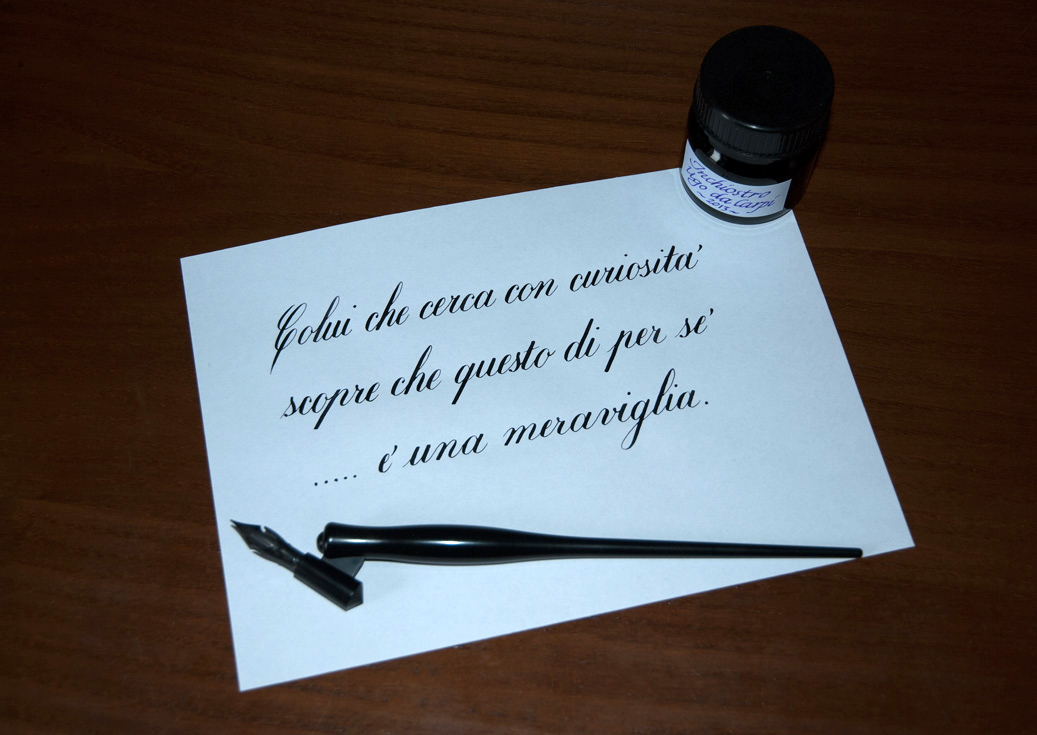 Inchiostro
Ugo da Carpi
~ 2013 ~
Colui che cerca con curiosita'
scopre che questo di per se'
..... e' una meraviglia.